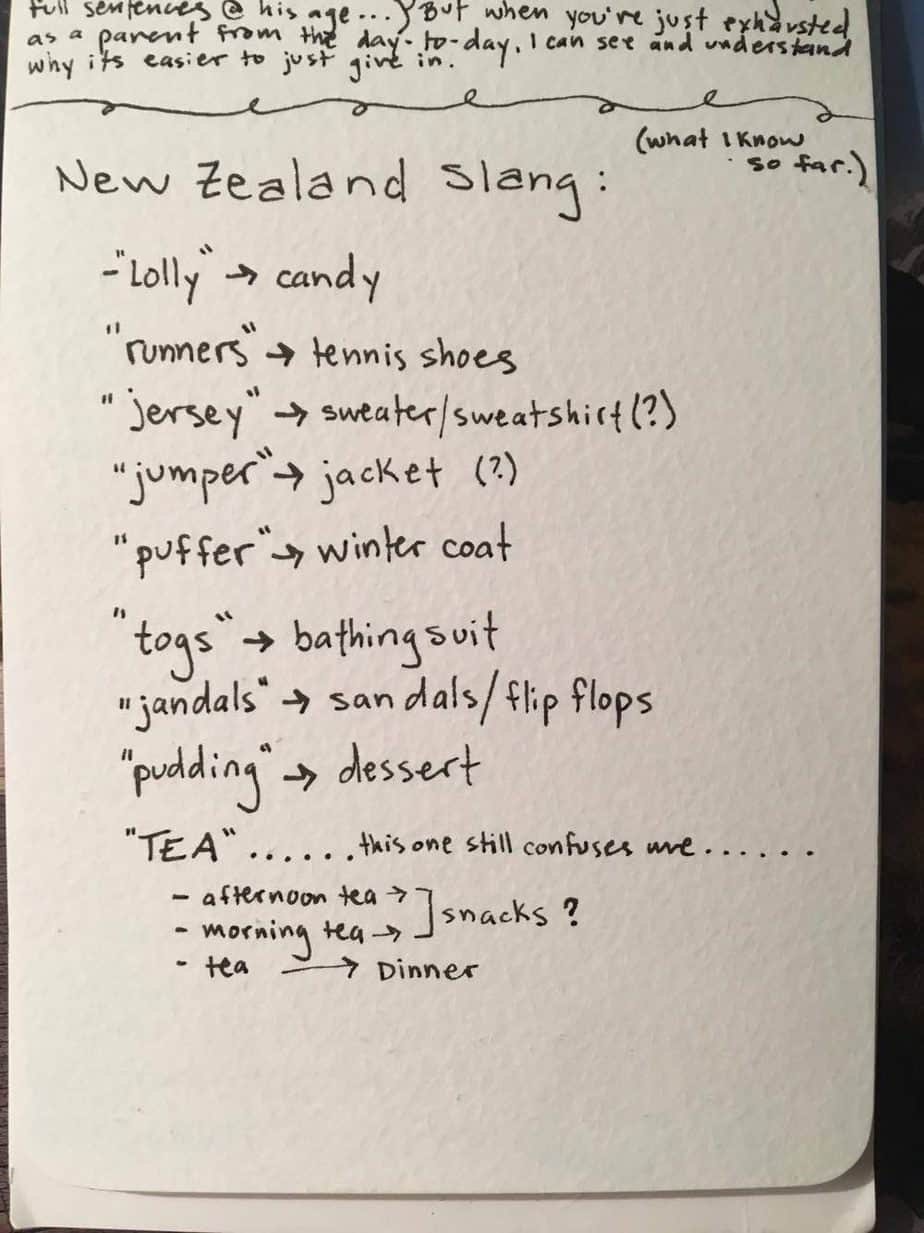 full sentences @ his age...) But when you're just exhausted
as a parent from the day-to-day, I can see and understand
why its easier to just give in.
(what I know
so far.)
New Zealand Slang:
-"Lolly" → candy
"runners" → tennis shoes
"jersey" → sweater/sweatshirt(?)
"jumper" → jacket (?)
"puffer" → winter coat
"togs" → bathing suit
"jandals" → sandals/flip flops
"pudding" → dessert
"TEA"......this one still confuses me......
- afternoon tea →
- morning tea →
] snacks ?
- tea → Dinner